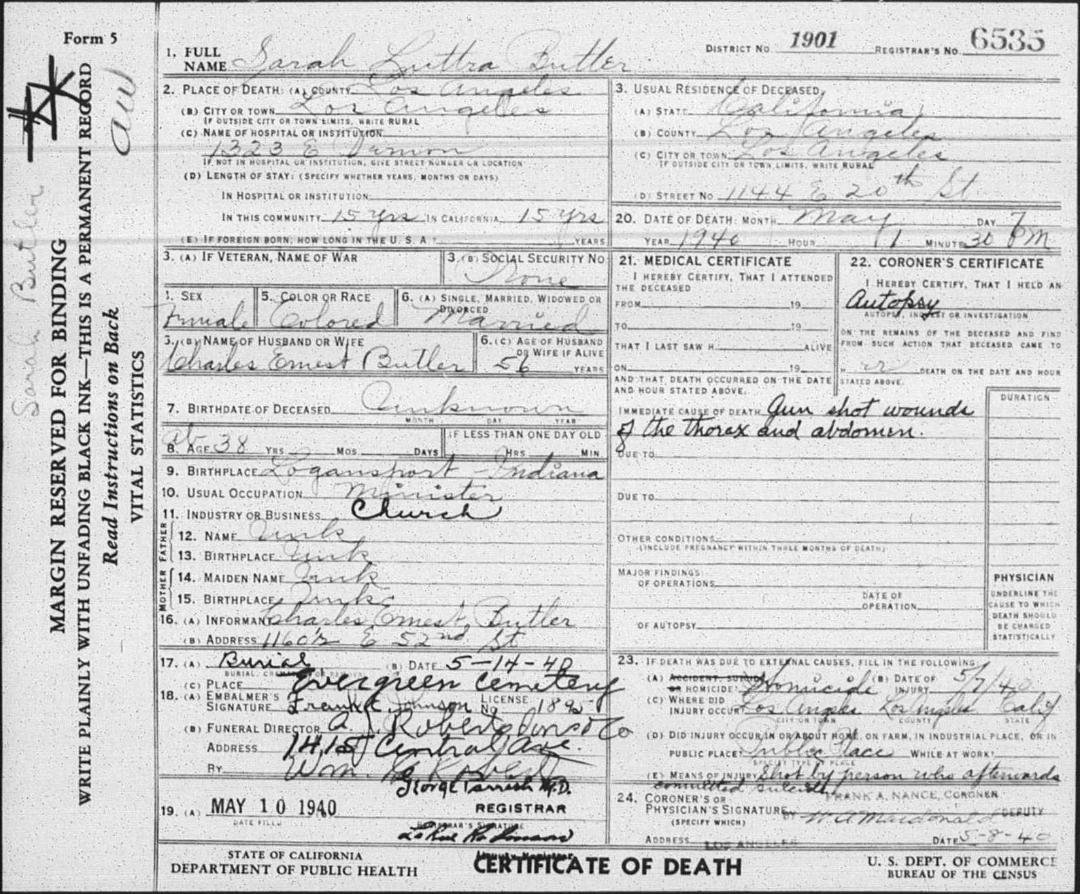 Form 5
aw
MARGIN RESERVED FOR BINDING
WRITE PLAINLY WITH UNFADING BLACK INK—THIS IS A PERMANENT RECORD
Read Instructions on Back
VITAL STATISTICS
Sarah Butler
1. FULL NAME Sarah Luttra Butler
DISTRICT NO. 1901 REGISTRAR'S NO. 6535
2. PLACE OF DEATH: (A) COUNTY Los Angeles
(B) CITY OR TOWN Los Angeles
IF OUTSIDE CITY OR TOWN LIMITS, WRITE RURAL
(C) NAME OF HOSPITAL OR INSTITUTION:
1323 E
IF NOT IN HOSPITAL OR INSTITUTION, GIVE STREET NUMBER OR LOCATION
(D) LENGTH OF STAY: (SPECIFY WHETHER YEARS, MONTHS OR DAYS)
IN HOSPITAL OR INSTITUTION
IN THIS COMMUNITY 15 yrs IN CALIFORNIA 15 yrs
(E) IF FOREIGN BORN, HOW LONG IN THE U. S. A? YEARS
3. USUAL RESIDENCE OF DECEASED:
(A) STATE California
(B) COUNTY Los Angeles
(C) CITY OR TOWN Los Angeles
IF OUTSIDE CITY OR TOWN LIMITS, WRITE RURAL
(D) STREET NO. 1144 E 20th St
20. DATE OF DEATH: MONTH May DAY 7
YEAR 1940 HOUR 1 MINUTE 30 PM
3. (A) IF VETERAN, NAME OF WAR
3. (B) SOCIAL SECURITY NO.
None
4. SEX
Female
5. COLOR OR RACE
Colored
6. (A) SINGLE, MARRIED, WIDOWED OR DIVORCED
Married
5. (B) NAME OF HUSBAND OR WIFE
Charles Ernest Butler
6. (C) AGE OF HUSBAND OR WIFE IF ALIVE
56 YEARS
7. BIRTHDATE OF DECEASED Unknown
MONTH DAY YEAR
8. AGE 38 YRS MOS. DAYS
IF LESS THAN ONE DAY OLD
HRS. MIN.
9. BIRTHPLACE Logansport - Indiana
10. USUAL OCCUPATION Minister
11. INDUSTRY OR BUSINESS Church
FATHER
12. NAME Unk
13. BIRTHPLACE Unk
MOTHER
14. MAIDEN NAME Unk
15. BIRTHPLACE Unk
16. (A) INFORMANT Charles Ernest Butler
(B) ADDRESS 1160½ E 52nd St
17. (A) Burial (B) DATE 5-14-40
(C) PLACE Evergreen Cemetery
18. (A) EMBALMER'S SIGNATURE Frank Johnson LICENSE NO. 1895
(B) FUNERAL DIRECTOR A. Roberts
ADDRESS 1415 Central Ave.
BY Wm.
George Parrish M.D.
19. (A) MAY 10 1940 REGISTRAR
DATE FILED REGISTRAR'S SIGNATURE
21. MEDICAL CERTIFICATE
I HEREBY CERTIFY, THAT I ATTENDED THE DECEASED
FROM 19
TO 19
THAT I LAST SAW H ALIVE
ON 19
AND THAT DEATH OCCURRED ON THE DATE AND HOUR STATED ABOVE.
22. CORONER'S CERTIFICATE
I HEREBY CERTIFY, THAT I HELD AN
Autopsy
AUTOPSY, INQUEST OR INVESTIGATION
ON THE REMAINS OF THE DECEASED AND FIND FROM SUCH ACTION THAT DECEASED CAME TO
H er DEATH ON THE DATE AND HOUR STATED ABOVE.
DURATION
IMMEDIATE CAUSE OF DEATH Gun shot wounds
of the thorax and abdomen.
DUE TO
DUE TO
OTHER CONDITIONS
(INCLUDE PREGNANCY WITHIN THREE MONTHS OF DEATH)
MAJOR FINDINGS:
OF OPERATIONS
DATE OF OPERATION
OF AUTOPSY
PHYSICIAN
UNDERLINE THE CAUSE TO WHICH DEATH SHOULD BE CHARGED STATISTICALLY
23. IF DEATH WAS DUE TO EXTERNAL CAUSES, FILL IN THE FOLLOWING:
(A) ACCIDENT, SUICIDE OR HOMICIDE? Homicide (B) DATE OF INJURY 5/7/40
(C) WHERE DID INJURY OCCUR? Los Angeles Los Angeles Calif
CITY OR TOWN COUNTY STATE
(D) DID INJURY OCCUR IN OR ABOUT HOME, ON FARM, IN INDUSTRIAL PLACE, OR IN
PUBLIC PLACE? Public Place WHILE AT WORK?
SPECIFY TYPE OF PLACE
(E) MEANS OF INJURY Shot by person who afterwards
committed suicide
24. CORONER'S OR PHYSICIAN'S SIGNATURE FRANK A. NANCE, CORONER
(SPECIFY WHICH) BY W A Macdonald DEPUTY
ADDRESS LOS ANGELES DATE 5-8-40
STATE OF CALIFORNIA
DEPARTMENT OF PUBLIC HEALTH
CERTIFICATE OF DEATH
U. S. DEPT. OF COMMERCE
BUREAU OF THE CENSUS